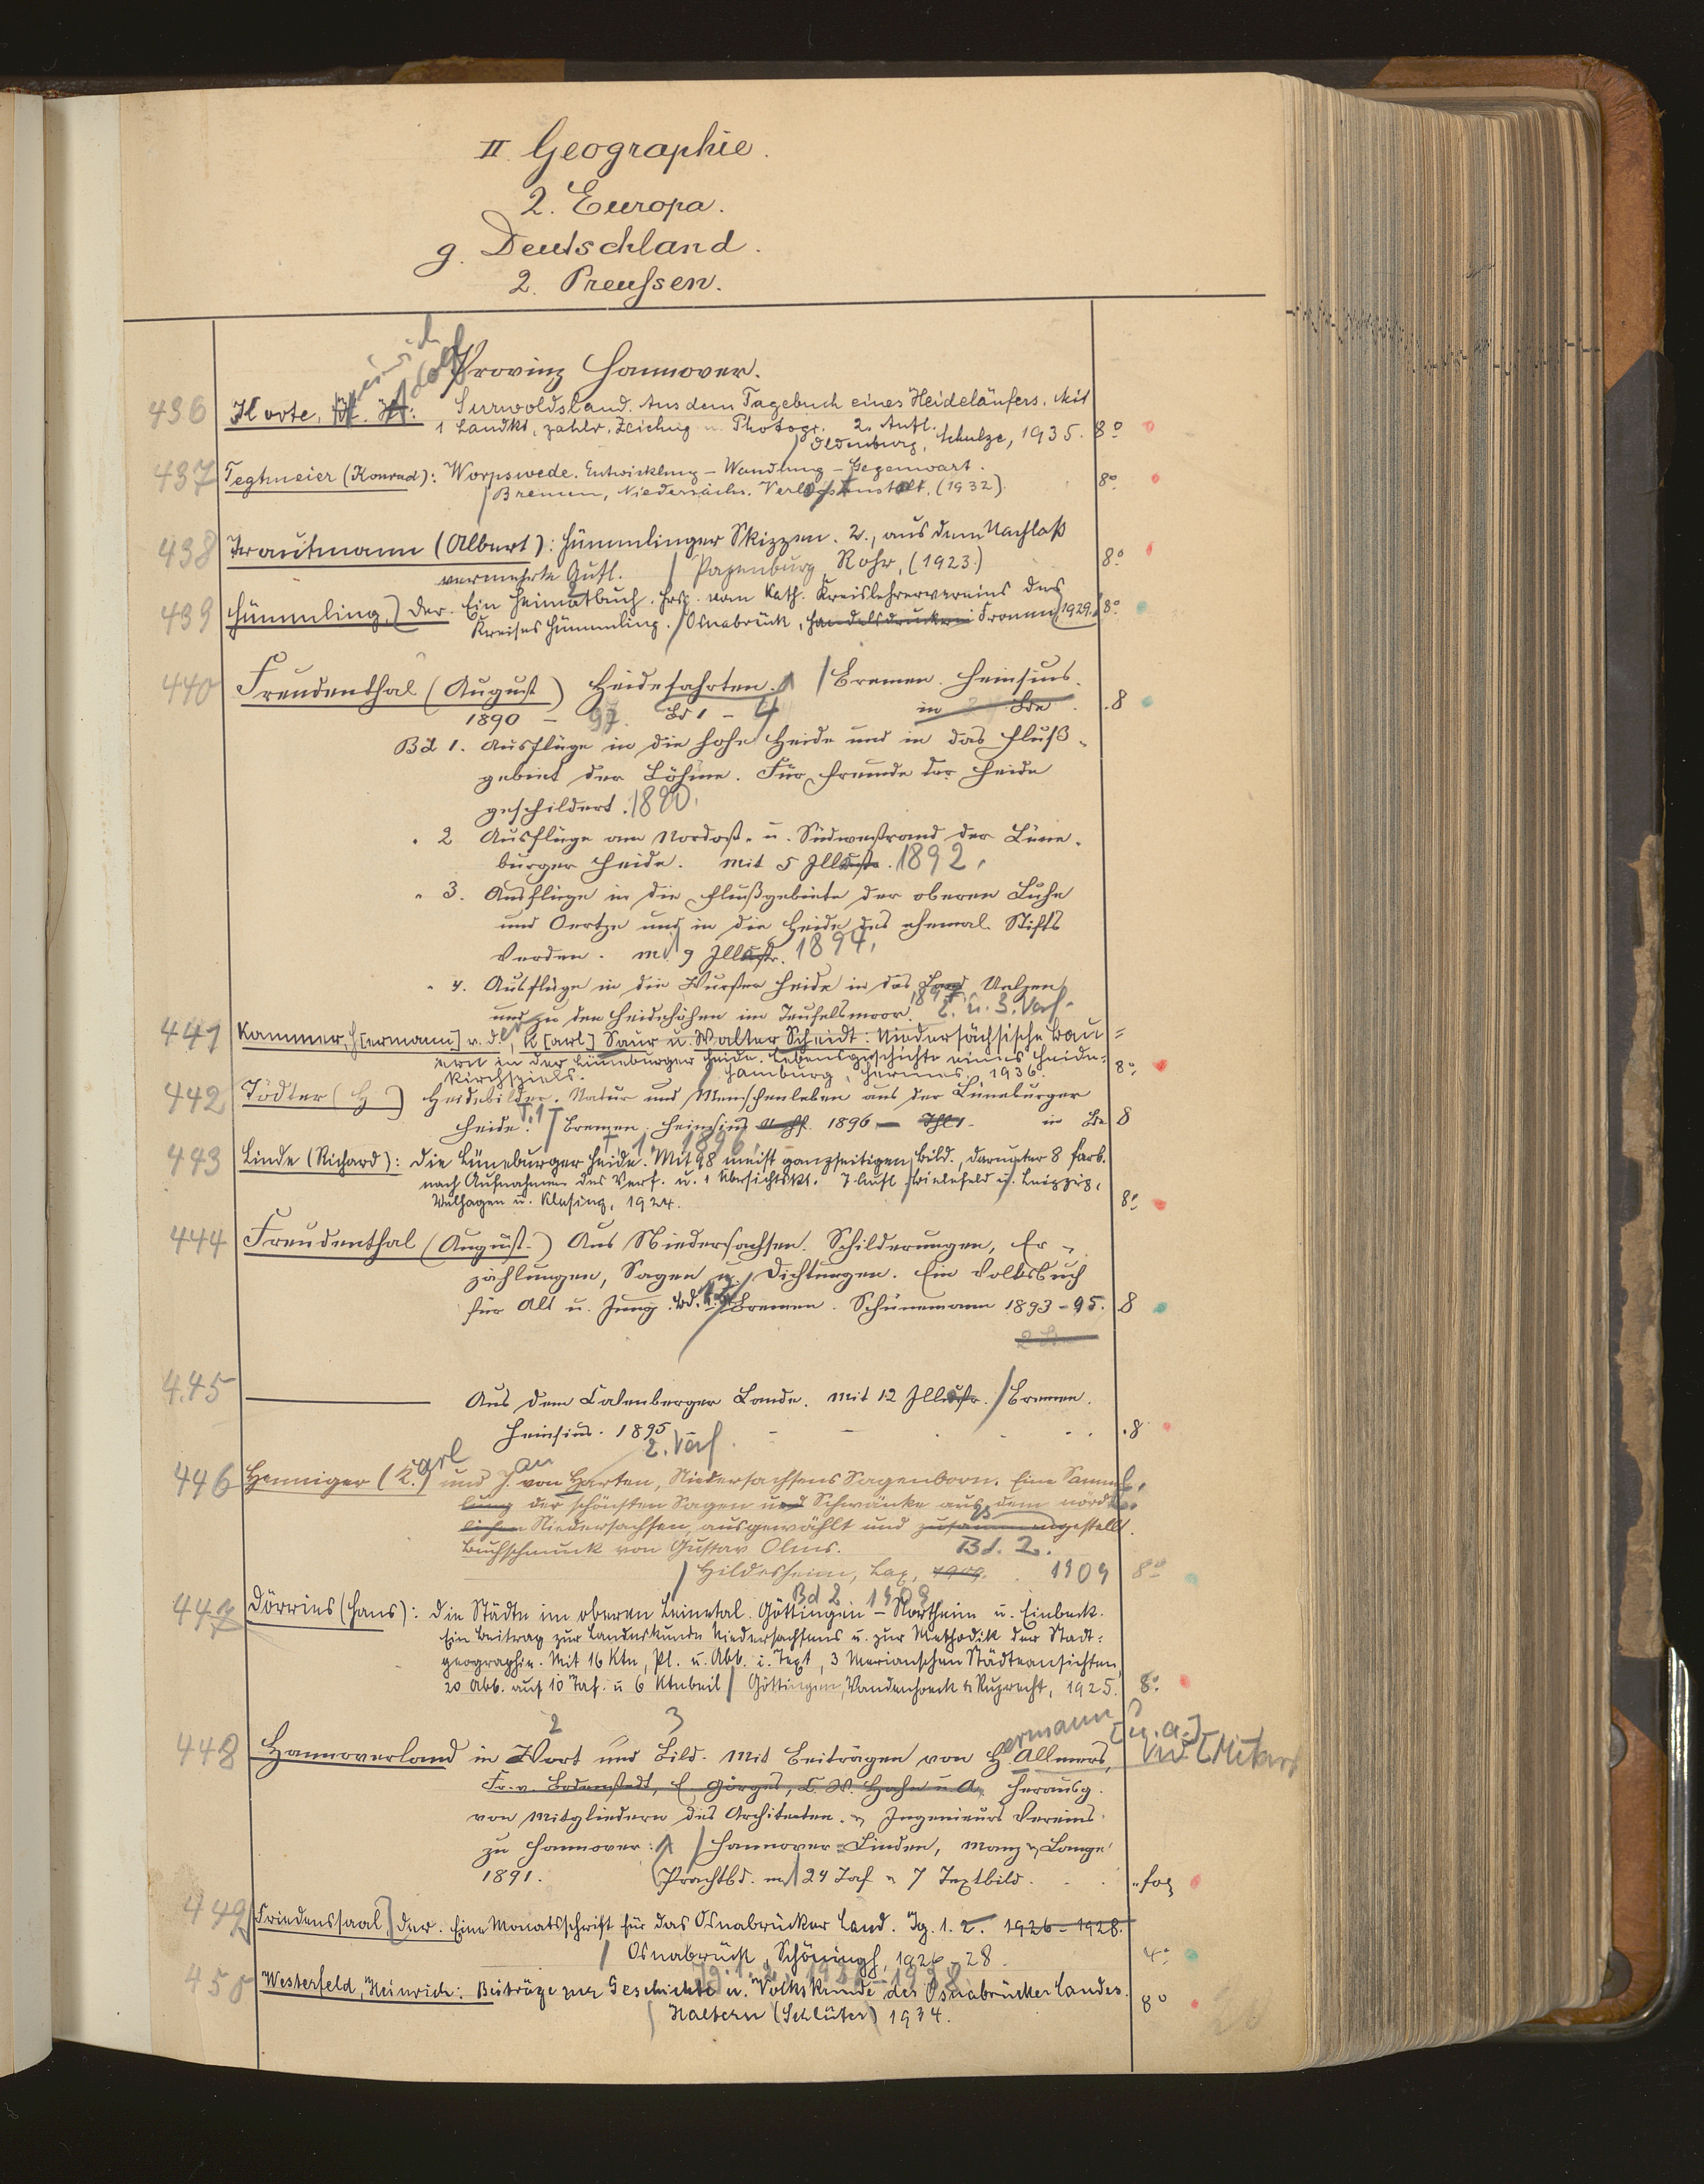 II. Geographie.
2. Europa.
g. Deutschland.
2. Preussen.
Provinz Hannover.
436 Korte, H. H.: Surwoldsland. Aus dem Tagebuch eines Heideläufers. Mit
einrich Adolf
1 Landkt., zahlr. Zeichng u. Photogr. 2. Aufl.
/ Oldenburg, Schulze, 1935. 8°
437 Tegtmeier (Konrad): Worpswede. Entwicklung – Wandlung – Gegenwart.
/ Bremen, Niedersächs. Verlagsanstalt, (1932). 8°
438 Trautmann (Albert): Hümmlinger Skizzen. 2., aus dem Nachlaß
vermehrte Aufl. / Papenburg, Rohr, (1923.) 8°
439 Hümmling, Der. Ein Heimatbuch. Hrsg. vom Kath. Kreislehrervereins des
Kreises Hümmling. / Osnabrück, Handelsdruckerei Fromm, 1929. 8°
440 Freudenthal (August) Heidefahrten. / Bremen. Heinsius.
1890 – 97. Bd 1 – 4 in Bde . 8
Bd 1. Ausflüge in die hohe Heide und in das Fluß-
gebiet der Böhme. Für Freunde der Heide
geschildert. 1890.
" 2 Ausflüge am Nordost- u. Südwestrand der Lüne-
burger Heide. Mit 5 Illustr. 1892.
" 3. Ausflüge in die Flußgebiete der oberen Luhe
und Oertze und in die Heide des ehemal. Stifts
Verden. mit 9 Illustr. 1894.
" 4. Ausflüge in die Wurster Heide in das Land Uelzen
und zu den Heidehöhen im Teufelsmoor. 1897
2. u. 3. Verf.
441 Kammer, H[ermann] v. d., K[arl] Saur u. Walter Scheidt: Niedersächsische Bau=
ern in der Lüneburger Heide. Lebensgeschichte eines Heide-
kirchspiels. / Hamburg, Hermes, 1936. 8°
442 Tödter (H) Heidebilder. Natur und Menschenleben aus der Lüneburger
Heide. T. 1 / Bremen. Heinsius Nachf. 1896 – Thl 1 – in Bde 8
T. 1 1896
443 Linde (Richard): Die Lüneburger Heide. Mit 98 meist ganzseitigen Bild., darunter 8 farb.
nach Aufnahmen des Verf. u. 1 Übersichtskt. 7. Aufl / Bielefeld u. Leipzig,
Velhagen u. Klasing, 1924. 8°
444 Freudenthal (August) Aus Niedersachsen. Schilderungen, Er-
zählungen, Sagen u. Dichtungen. Ein Volksbuch
für Alt u. Jung. Bd. 1. 2. / Bremen. Schünemann 1893 – 95. 8
2 Bde
445 ——— Aus dem Calenberger Lande. Mit 12 Illustr. / Bremen.
Heinsius. 1895 . 8
2. Verf.
446 Henniger (K.) und J. von Harten, Niedersachsens Sagenborn. Eine Samm-
arl an
lung der schönsten Sagen und Schwänke aus dem nörd-
lichen Niedersachsen, ausgewählt und zusammengestellt.
Buchschmuck von Gustav Olms. Bd. 2.
/ Hildesheim, Lax, 1909. 1909 8°
Bd 2 1909
447 Dörries (Hans): Die Städte im oberen Leinetal. Göttingen – Northeim u. Einbeck.
Ein Beitrag zur Landeskunde Niedersachsens u. zur Methodik der Stadt-
geographie. Mit 16 Ktn, Pl. u. Abb. i. Text, 3 Merianschen Städteansichten,
20 Abb. auf 10 Taf. u 6 Ktnbeil / Göttingen, Vandenhoeck & Ruprecht, 1925. 8°
2 3 ermann [u. a.]
448 Hannoverland in Wort und Bild. Mit Beiträgen von H. Allmers,
Fr. v. Bodenstedt, E. Görges, L. W. Hahn u. A. Herausg.
von Mitgliedern des Architecten- & Ingenieurs Vereins
zu Hannover: / Hannover-Linden, Manz & Lange
1891. (Prachtbd. m 24 Taf u 7 Textbild. . . . " fol
449 Friedenssaal, Der. Eine Monatsschrift für das Osnabrücker Land. Jg. 1. 2. 1926 – 1928.
/ Osnabrück, Schöningh, 1926 – 28. 4°
Jg. 1. 2. 1926 – 1928.
450 Westerfeld, Heinrich: Beiträge zur Geschichte u. Volkskunde des Osnabrücker Landes.
/ Haltern (Schlüter) 1934. 8°